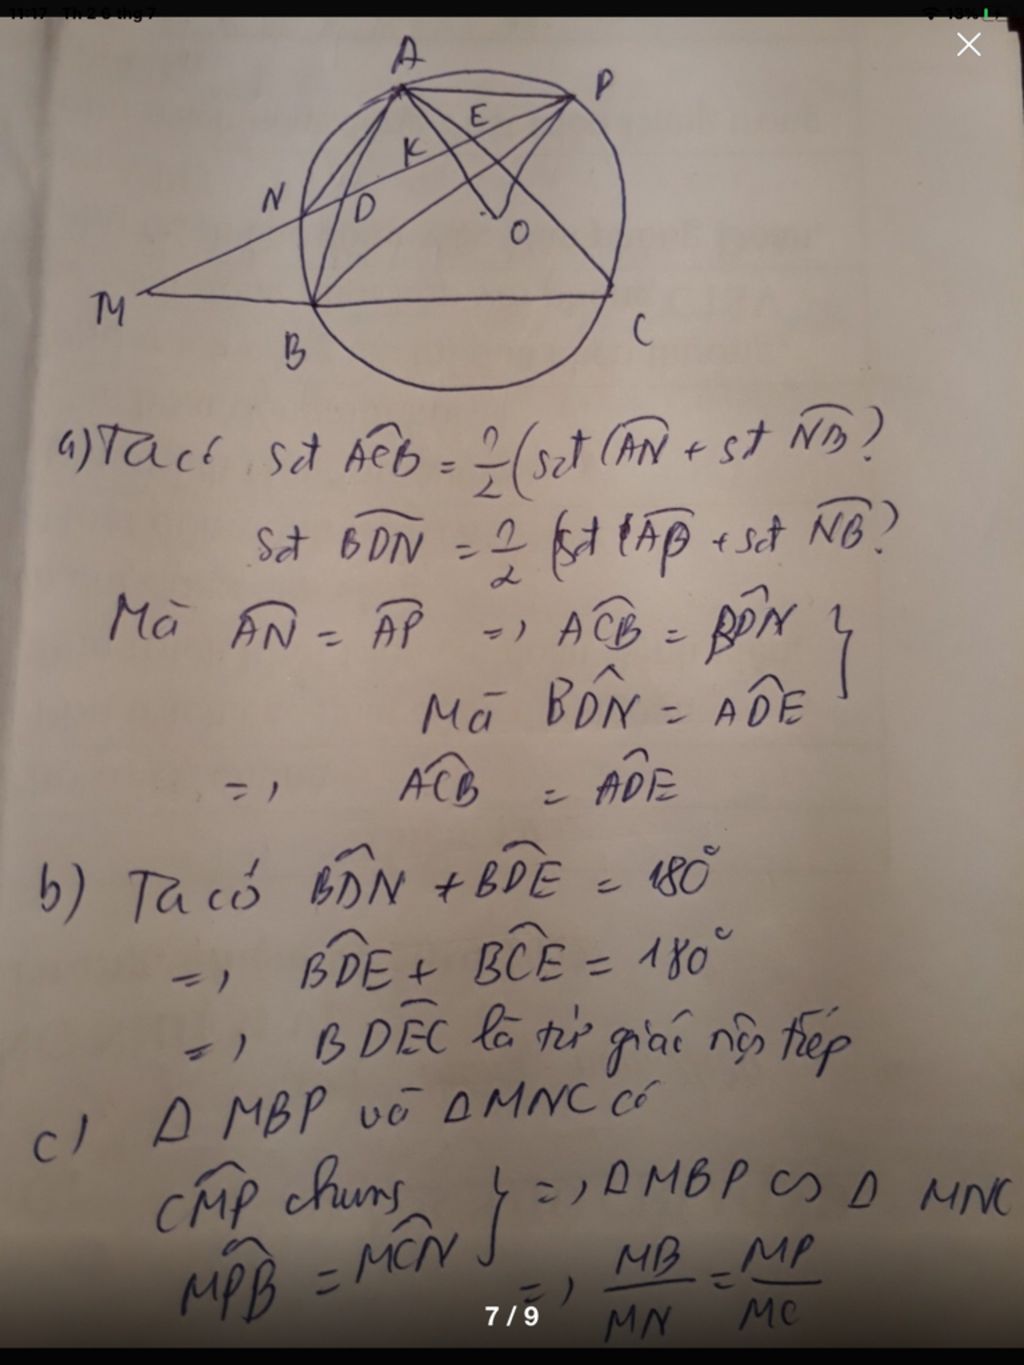 11:17 Th 2 6 thg 7 13%
A
P
E
K
N
D
O
M
B
C
a) Ta có sđt ACB = 1/2 (sđt (AN + sđ NB)
sđt BDN = 1/2 (sđt AP + sđt NB)
Mà AN = AP => ACB = BDN }
Mà BDN = ADE
=> ACB = ADE
b) Ta có BDN + BDE = 180°
=> BDE + BCE = 180°
=> BDEC là tứ giác nội tiếp
c) Δ MBP và Δ MNC có
CMP chung } => Δ MBP ∽ Δ MNC
MPB = MCN => MB/MN = MP/MC
7 / 9